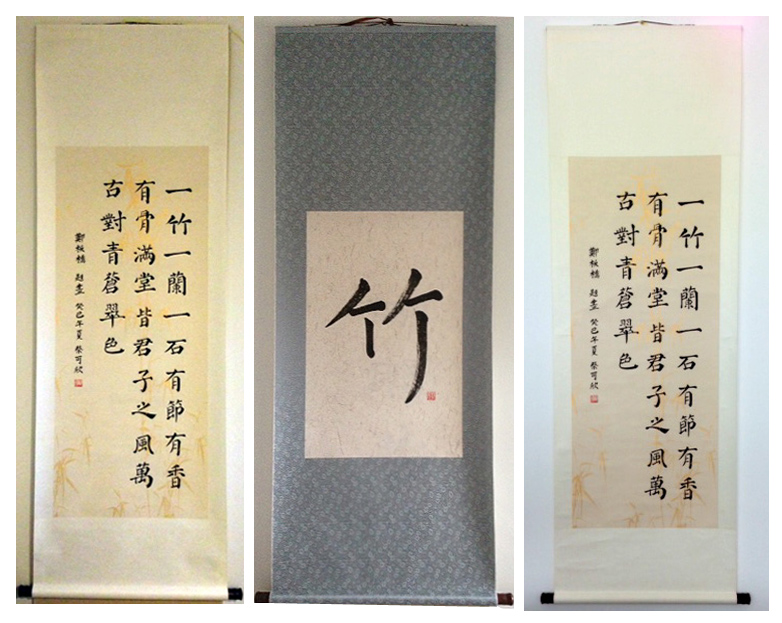 一竹一蘭一石有節有香
有骨滿堂皆君子之風萬
古對青蒼翠色
鄭板橋 題畫 癸巳年夏 蔡可欣
竹
一竹一蘭一石有節有香
有骨滿堂皆君子之風萬
古對青蒼翠色
鄭板橋 題畫 癸巳年夏 蔡可欣